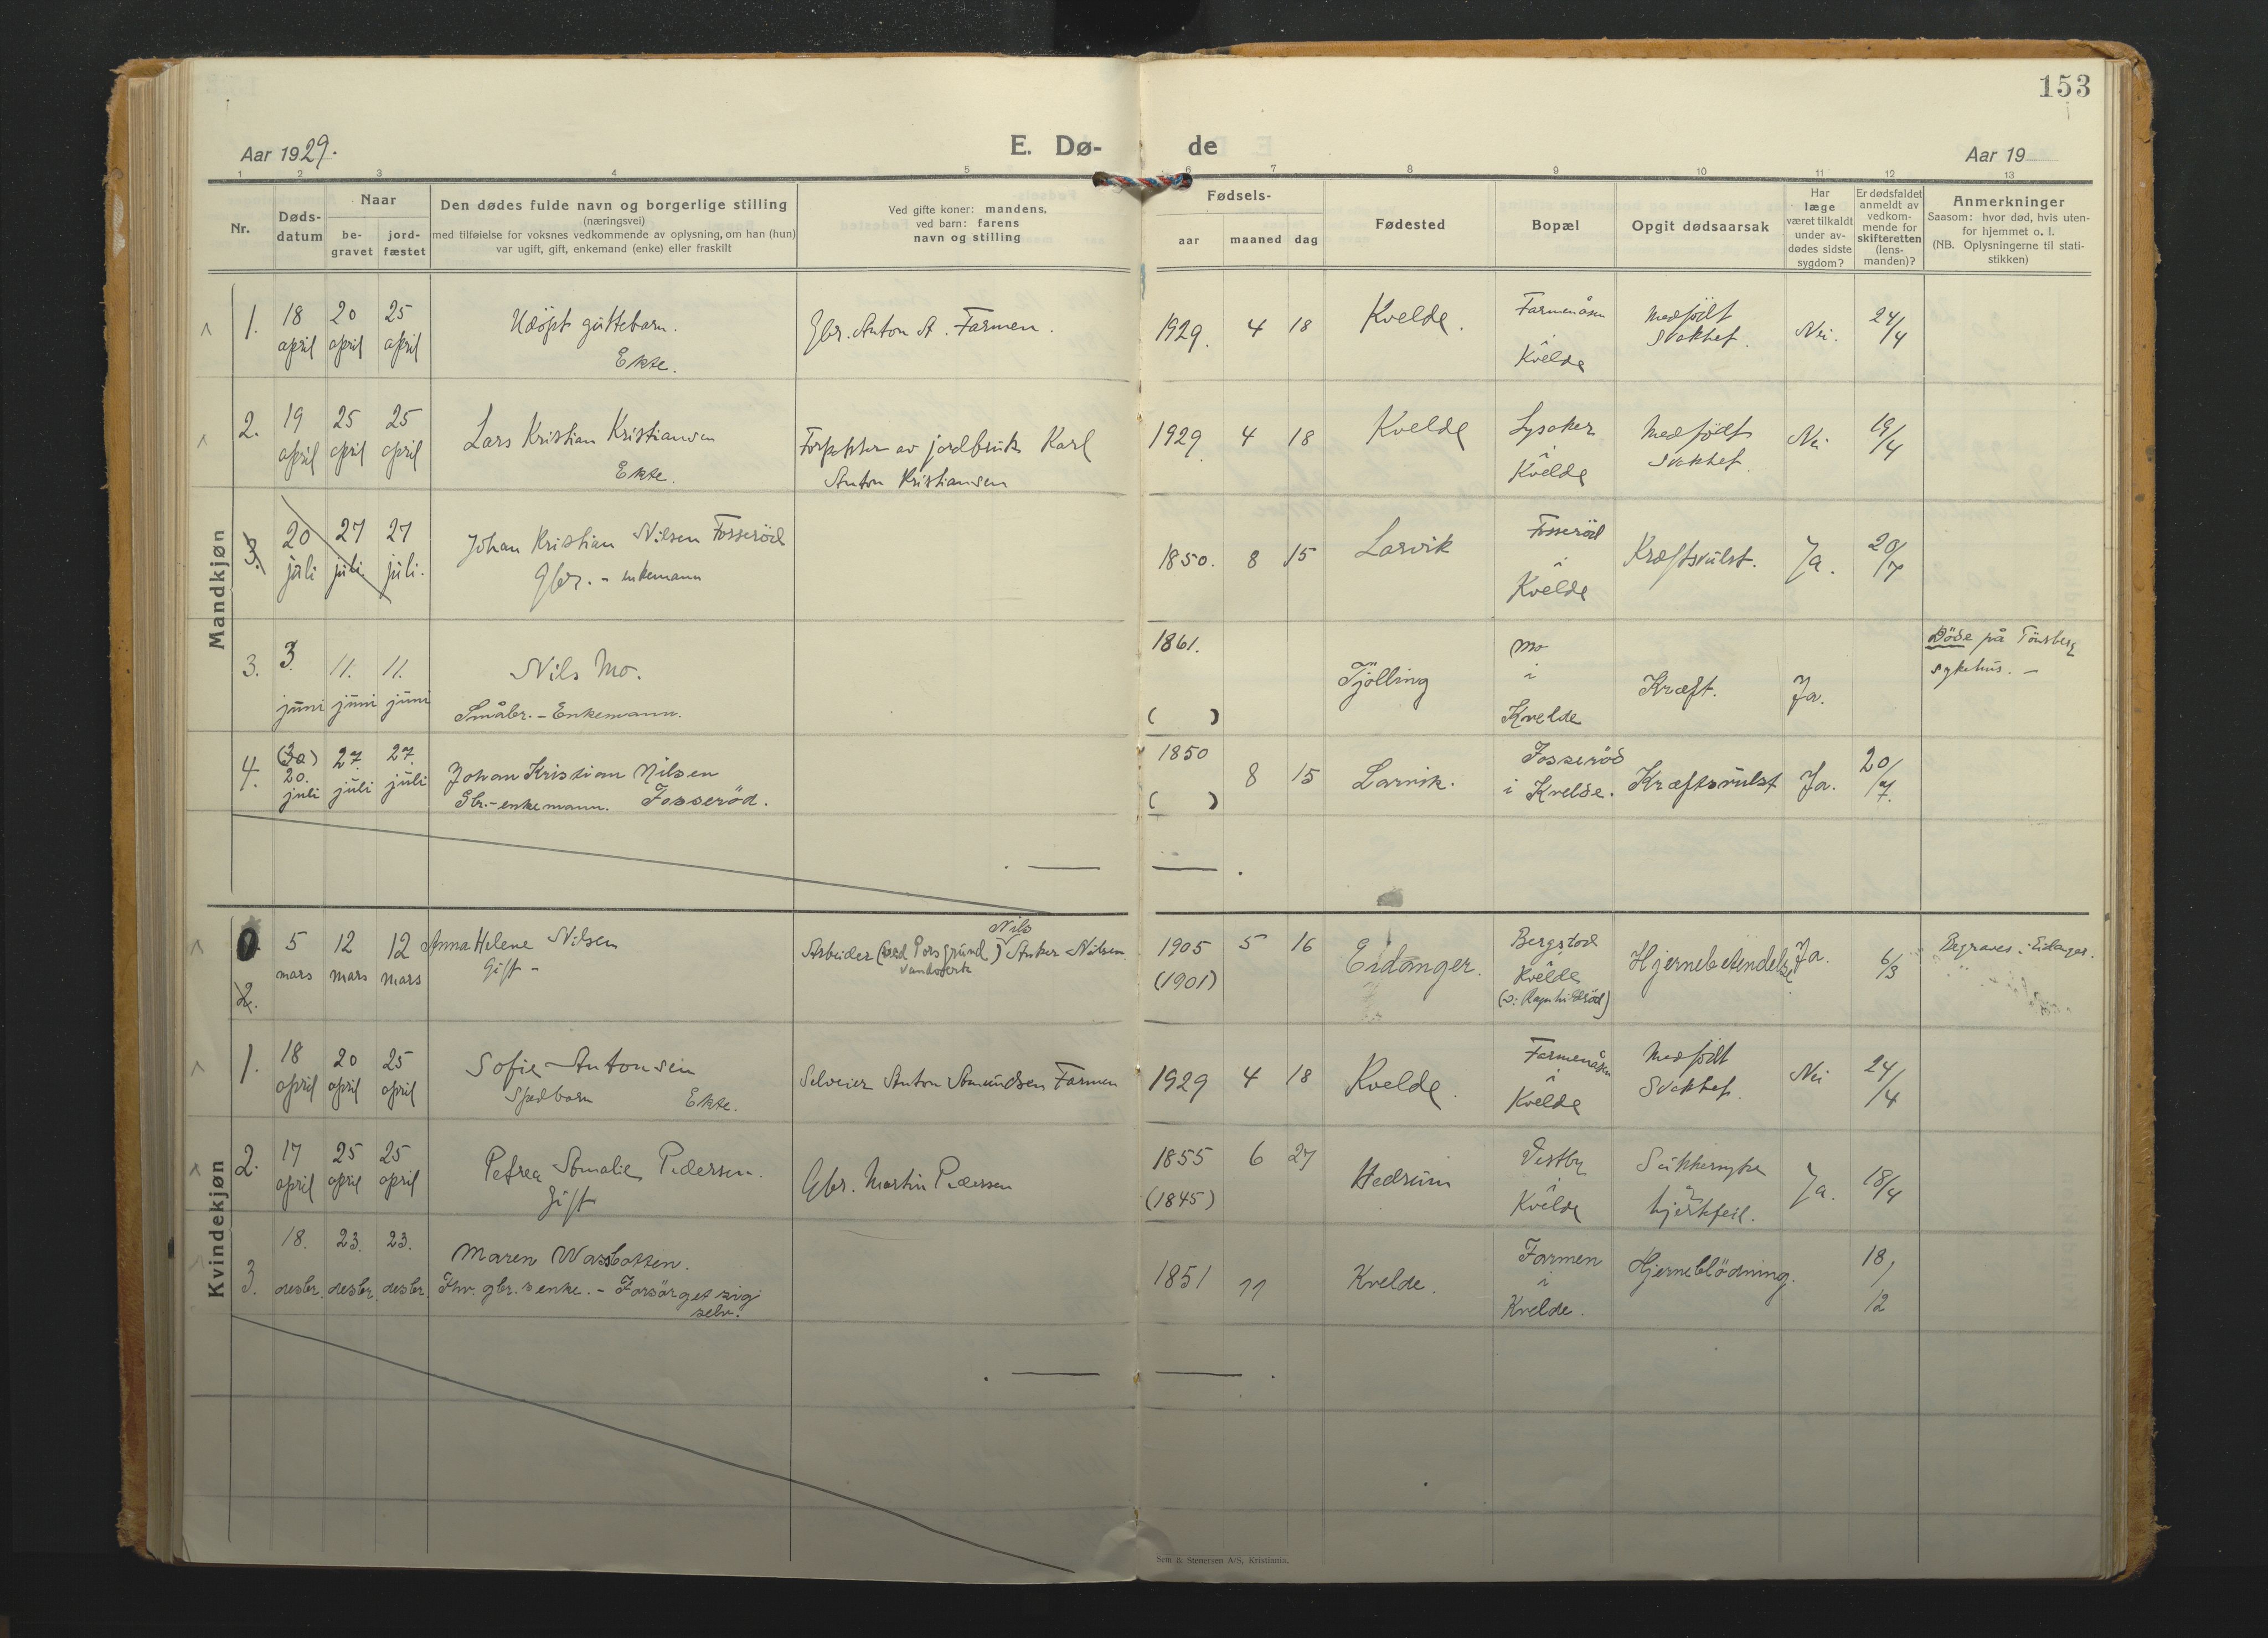 153
Aar 1929.
E. Dø- de
Aar 19
1 2 3 4 5 6 7 8 9 10 11 12 13
Nr.
Døds-
datum
Naar
be-
gravet
jord-
fæstet
Den dødes fulde navn og borgerlige stilling
(næringsvei)
med tilføielse for voksnes vedkommende av oplysning, om han (hun)
var ugift, gift, enkemand (enke) eller fraskilt
Ved gifte koner: mandens,
ved barn: farens
navn og stilling
Fødsels-
aar maaned dag
Fødested
Bopæl
Opgit dødsaarsak
Har
læge
været tilkaldt
under av-
dødes sidste
sygdom?
Er dødsfaldet
anmeldt av
vedkom-
mende for
skifteretten
(lens-
manden)?
Anmerkninger
Saasom: hvor død, hvis uten-
for hjemmet o. l.
(NB. Oplysningerne til stati-
stikken)
Mandkjøn
1. 18 april 20 april 25 april Udöpt guttebarn. Ekte. Gbr. Anton A. Farmen. 1929. 4 18 Kvelde. Farmenåsen i Kvelde Medfödt svakhet. Nei. 24/4
2. 19 april 25 april 25 april Lars Kristian Kristiansen Ekte. Forpakter av jordbruk Karl Anton Kristiansen 1929 4 18 Kvelde Lysaker i Kvelde Medfödt svakhet. Nei 19/4
3. 20 juli 27 juli 27 juli. Johan Kristian Nilsen Fosseröd Gbr. - enkemann 1850. 8 15 Larvik Fosseröd i Kvelde Kræftsvulst. Ja. 20/7
3. 3. juni 11. juni 11. juni Nils Mo. Småbr. - Enkemann. 1861. ( ) Tjölling Mo i Kvelde Kræft. Ja. Döde på Tönsberg sykehus. -
4. 20. juli 27. juli 27. juli Johan Kristian Nilsen Gbr.-enkemann. Fosseröd. 1850 ( ) 8 15 Larvik. Fosseröd i Kvelde. Kræftsvulst Ja. 20/7.
Kvindekjøn
2. 5 mars 12 mars 12 mars Anna Helene Nilsen Gift - Arbeider (ved Porsgrund Vandverk) Nils Anker Nilsen. 1905 (1901) 5 16 Eidanger. Bergstod i Kvelde Hjernebetendelse Ja. 6/3 Begraves i Eidanger.
1. 18 april 20 april 25 april Sofie Antonsen Spædbarn Ekte. Selveier Anton Amundsen Farmen 1929 4 18 Kvelde. Farmenåsen i Kvelde Medfödt svakhet. Nei 24/4
2. 17 april 25 april 25 april Petrea Amalie Pedersen. Gift Gbr. Martin Pedersen 1855 (1845) 6 27 Hedrum Vestby i Kvelde Sukkersyke og hjertefeil. Ja. 18/4
3. 18. desbr. 23. desbr. 23. desbr. Maren Wassbotten. Fhv. gbr.s enke. - Forsörget sig selv. 1851 11 Kvelde. Farmen i Kvelde. Hjerneblödning. 18/12
Sem & Stenersen A/S, Kristiania.